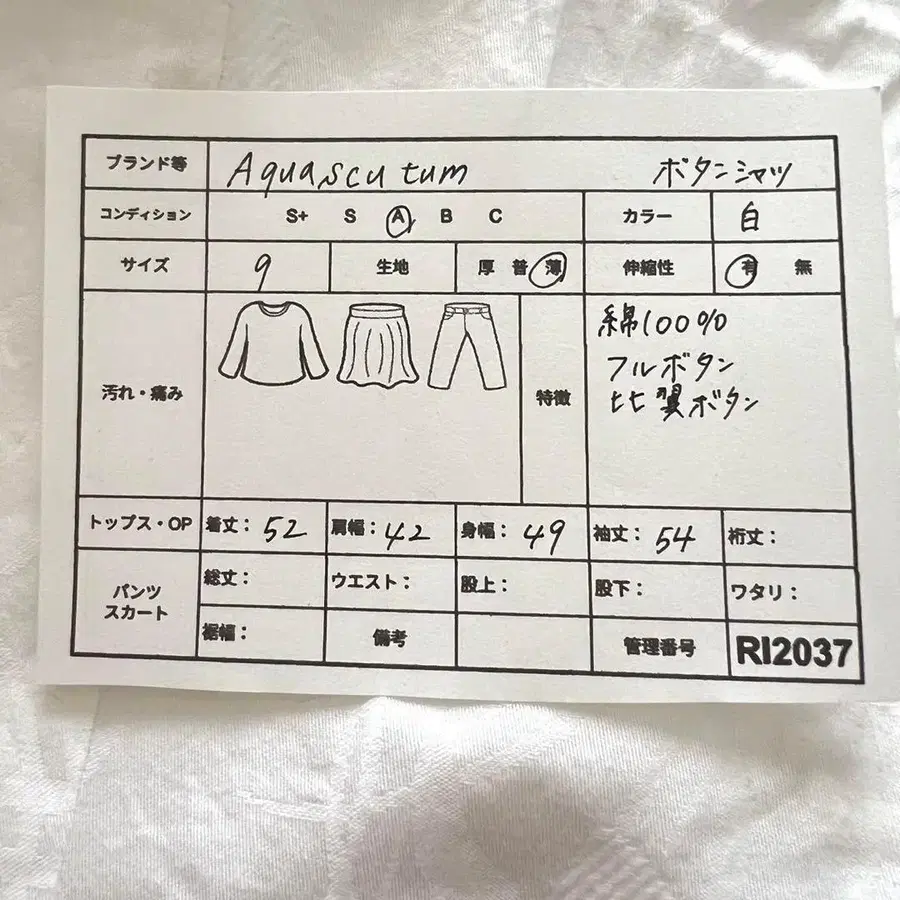 ブランド等 Aquascutum ボタンシャツ
コンディション S+ S A B C カラー 白
サイズ 9 生地 厚 普 薄 伸縮性 有 無
汚れ・痛み 特徴 綿100%
フルボタン
比翼ボタン
トップス・OP 着丈: 52 肩幅: 42 身幅: 49 袖丈: 54 裄丈:
パンツ スカート 総丈: ウエスト: 股上: 股下: ワタリ:
裾幅: 備考 管理番号 RI2037